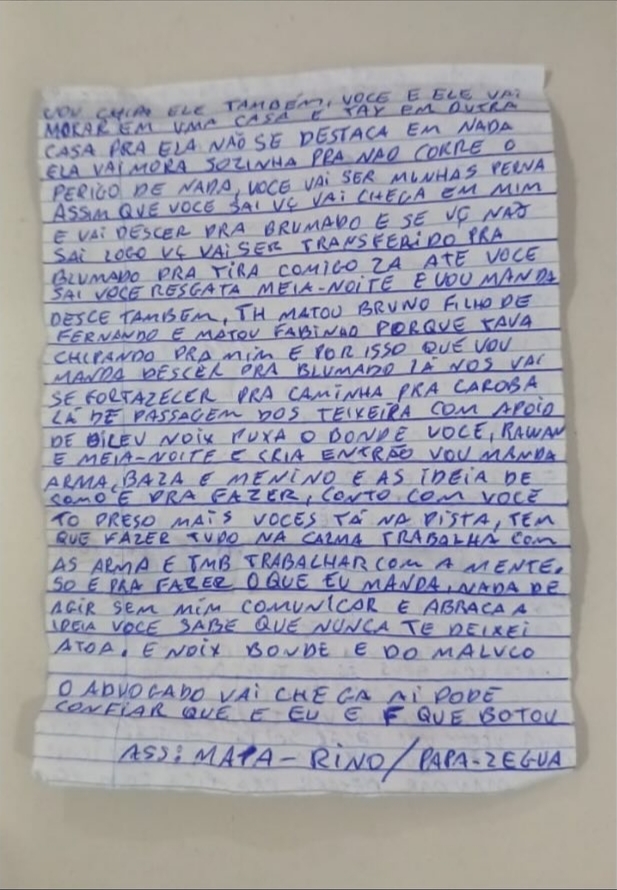 VOU CHIPA ELE TAMBEM, VOCE E ELE VAI
MORAR EM UMA CASA E TAY EM OUTRA
CASA PRA ELA NÃO SE DESTACA EM NADA
ELA VAI MORA SOZINHA PRA NAO CORRE O
PERIGO DE NADA, VOCE VAI SER MINHAS PERNA
ASSIM QUE VOCE SAI VÇ VAI CHEGA EM MIM
E VAI DESCER PRA BRUMADO E SE VÇ NÃO
SAI LOGO VÇ VAI SER TRANSFERIDO PRA
BLUMADO PRA TIRA COMIGO LA ATE VOCE
SAI VOCE RESGATA MEIA-NOITE E VOU MANDA
DESCE TAMBEM, TH MATOU BRUNO FILHO DE
FERNANDO E MATOU FABINHO PORQUE TAVA
CHIPANDO PRA MIM E POR ISSO QUE VOU
MANDA DESCER PRA BLUMADO LÁ NOS VAI
SE FORTALECER PRA CAMINHA PRA CAROBA
LÁ DE PASSAGEM DOS TEIXEIRA COM APOIO
DE DILEU NOIX PUXA O BONDE VOCE, RAWAN
E MEIA-NOITE E CRIA ENTRÃO VOU MANDA
ARMA, BALA E MENINO E AS IDEIA DE
COMO E PRA FAZER, CONTO COM VOCÊ
TO PRESO MAIS VOCES TÁ NA PISTA, TEM
QUE FAZER TUDO NA CALMA TRABALHA COM
AS ARMA E TMB TRABALHAR COM A MENTE.
SO E PRA FAZER O QUE EU MANDA, NADA DE
AGIR SEM MIM COMUNICAR E ABRAÇA A
IDEIA VOCE SABE QUE NUNCA TE DEIXEI
ATOA. E NOIX BONDE E DO MALUCO
O ADVOGADO VAI CHEGA AI PODE
CONFIAR QUE E EU E F QUE BOTOU
ASS: MATA-RINO/PAPA-LEGUA